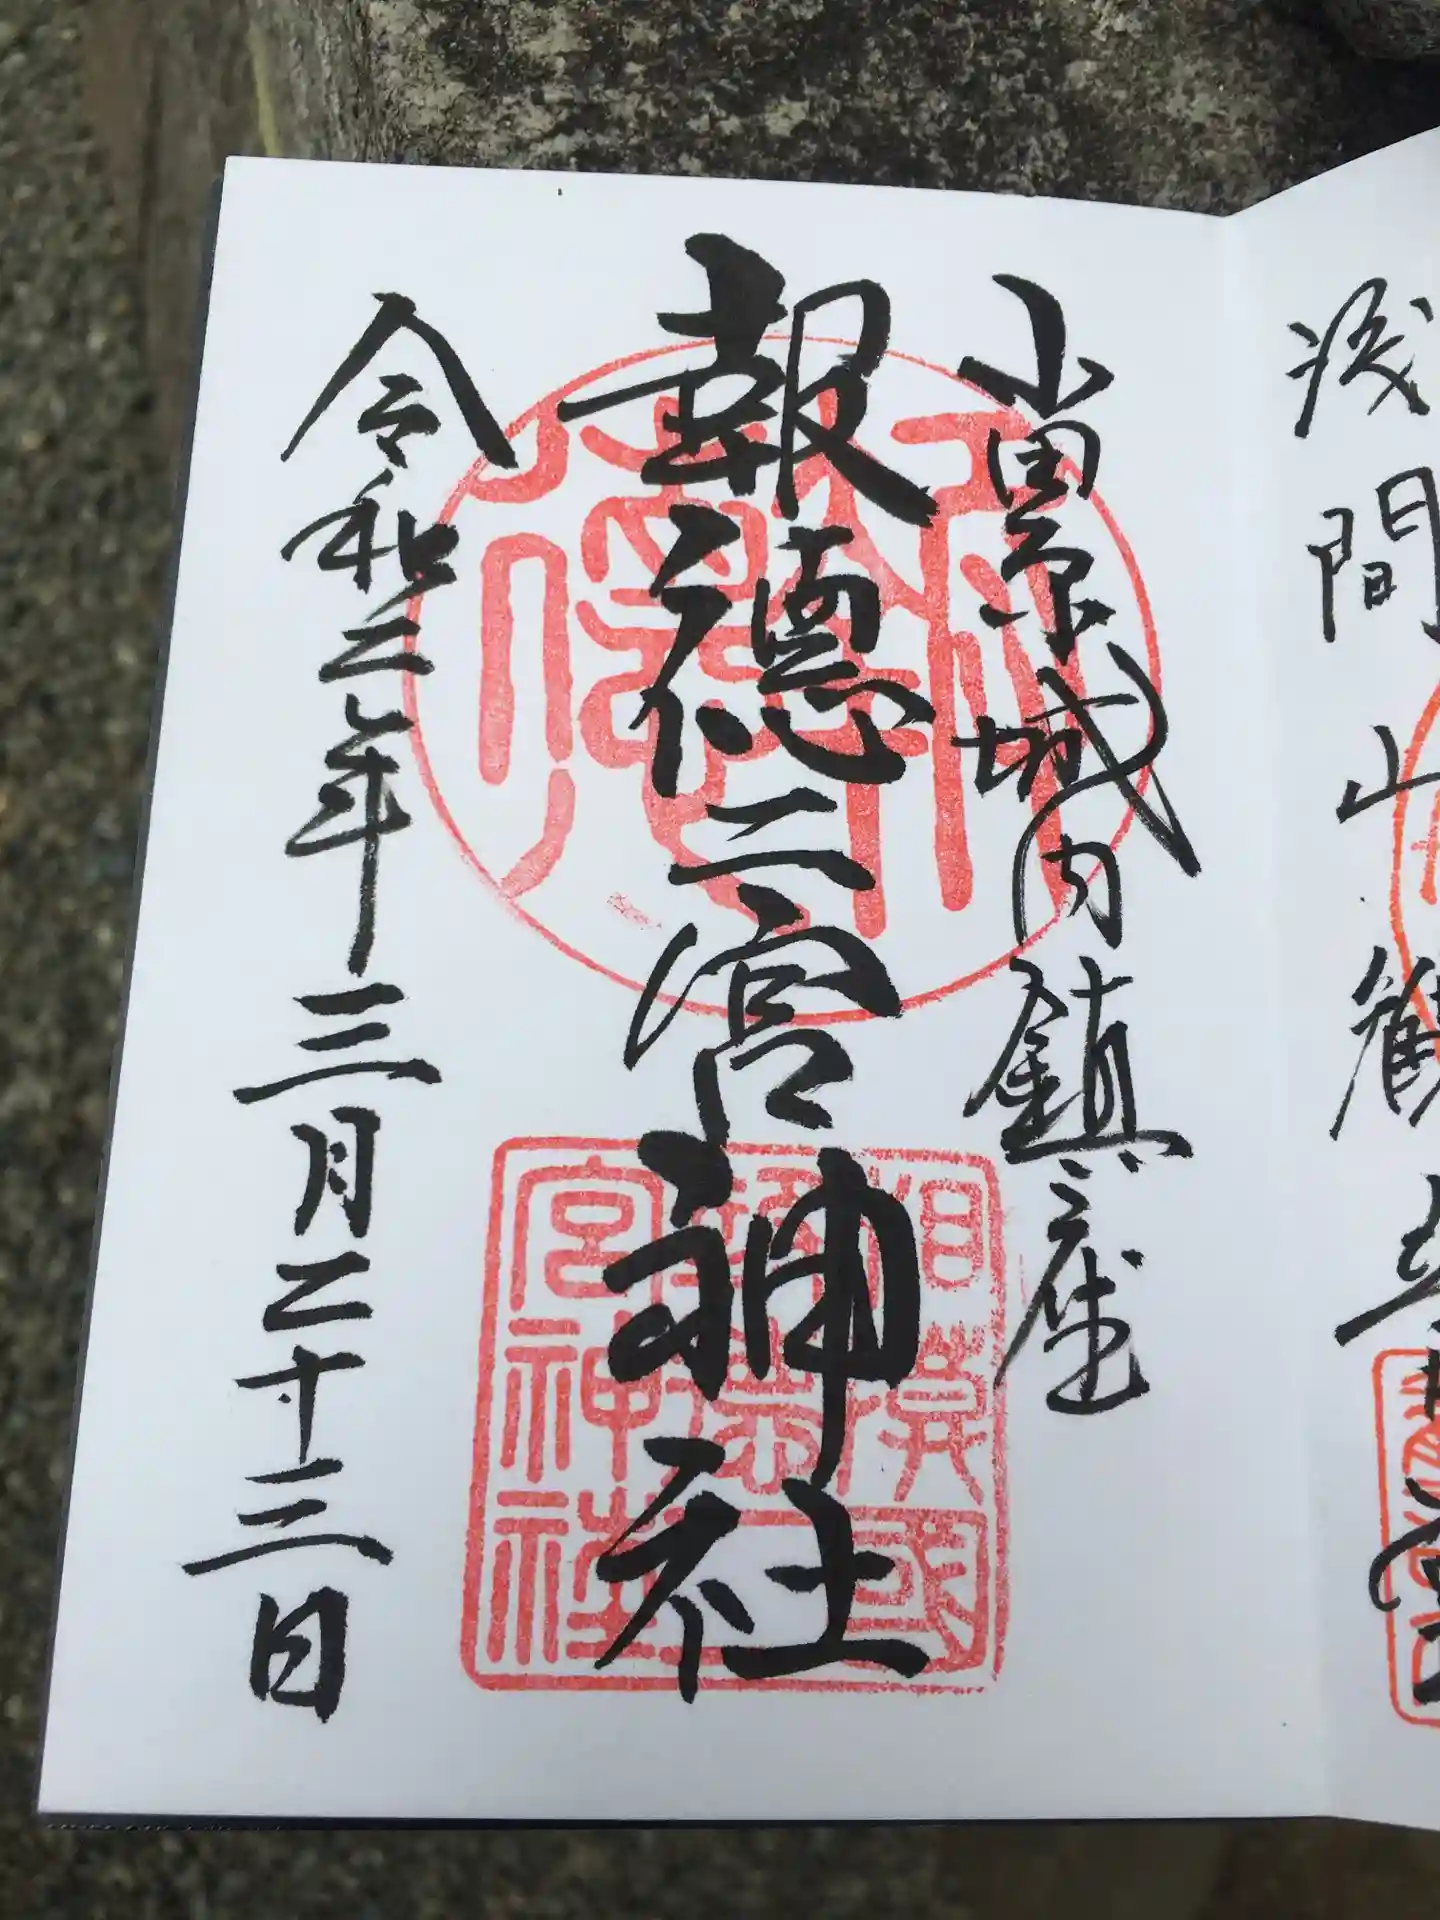 浅間山観
小田原城内鎮座
報徳二宮神社
令和二年三月二十三日
相模國
報徳二
宮神社